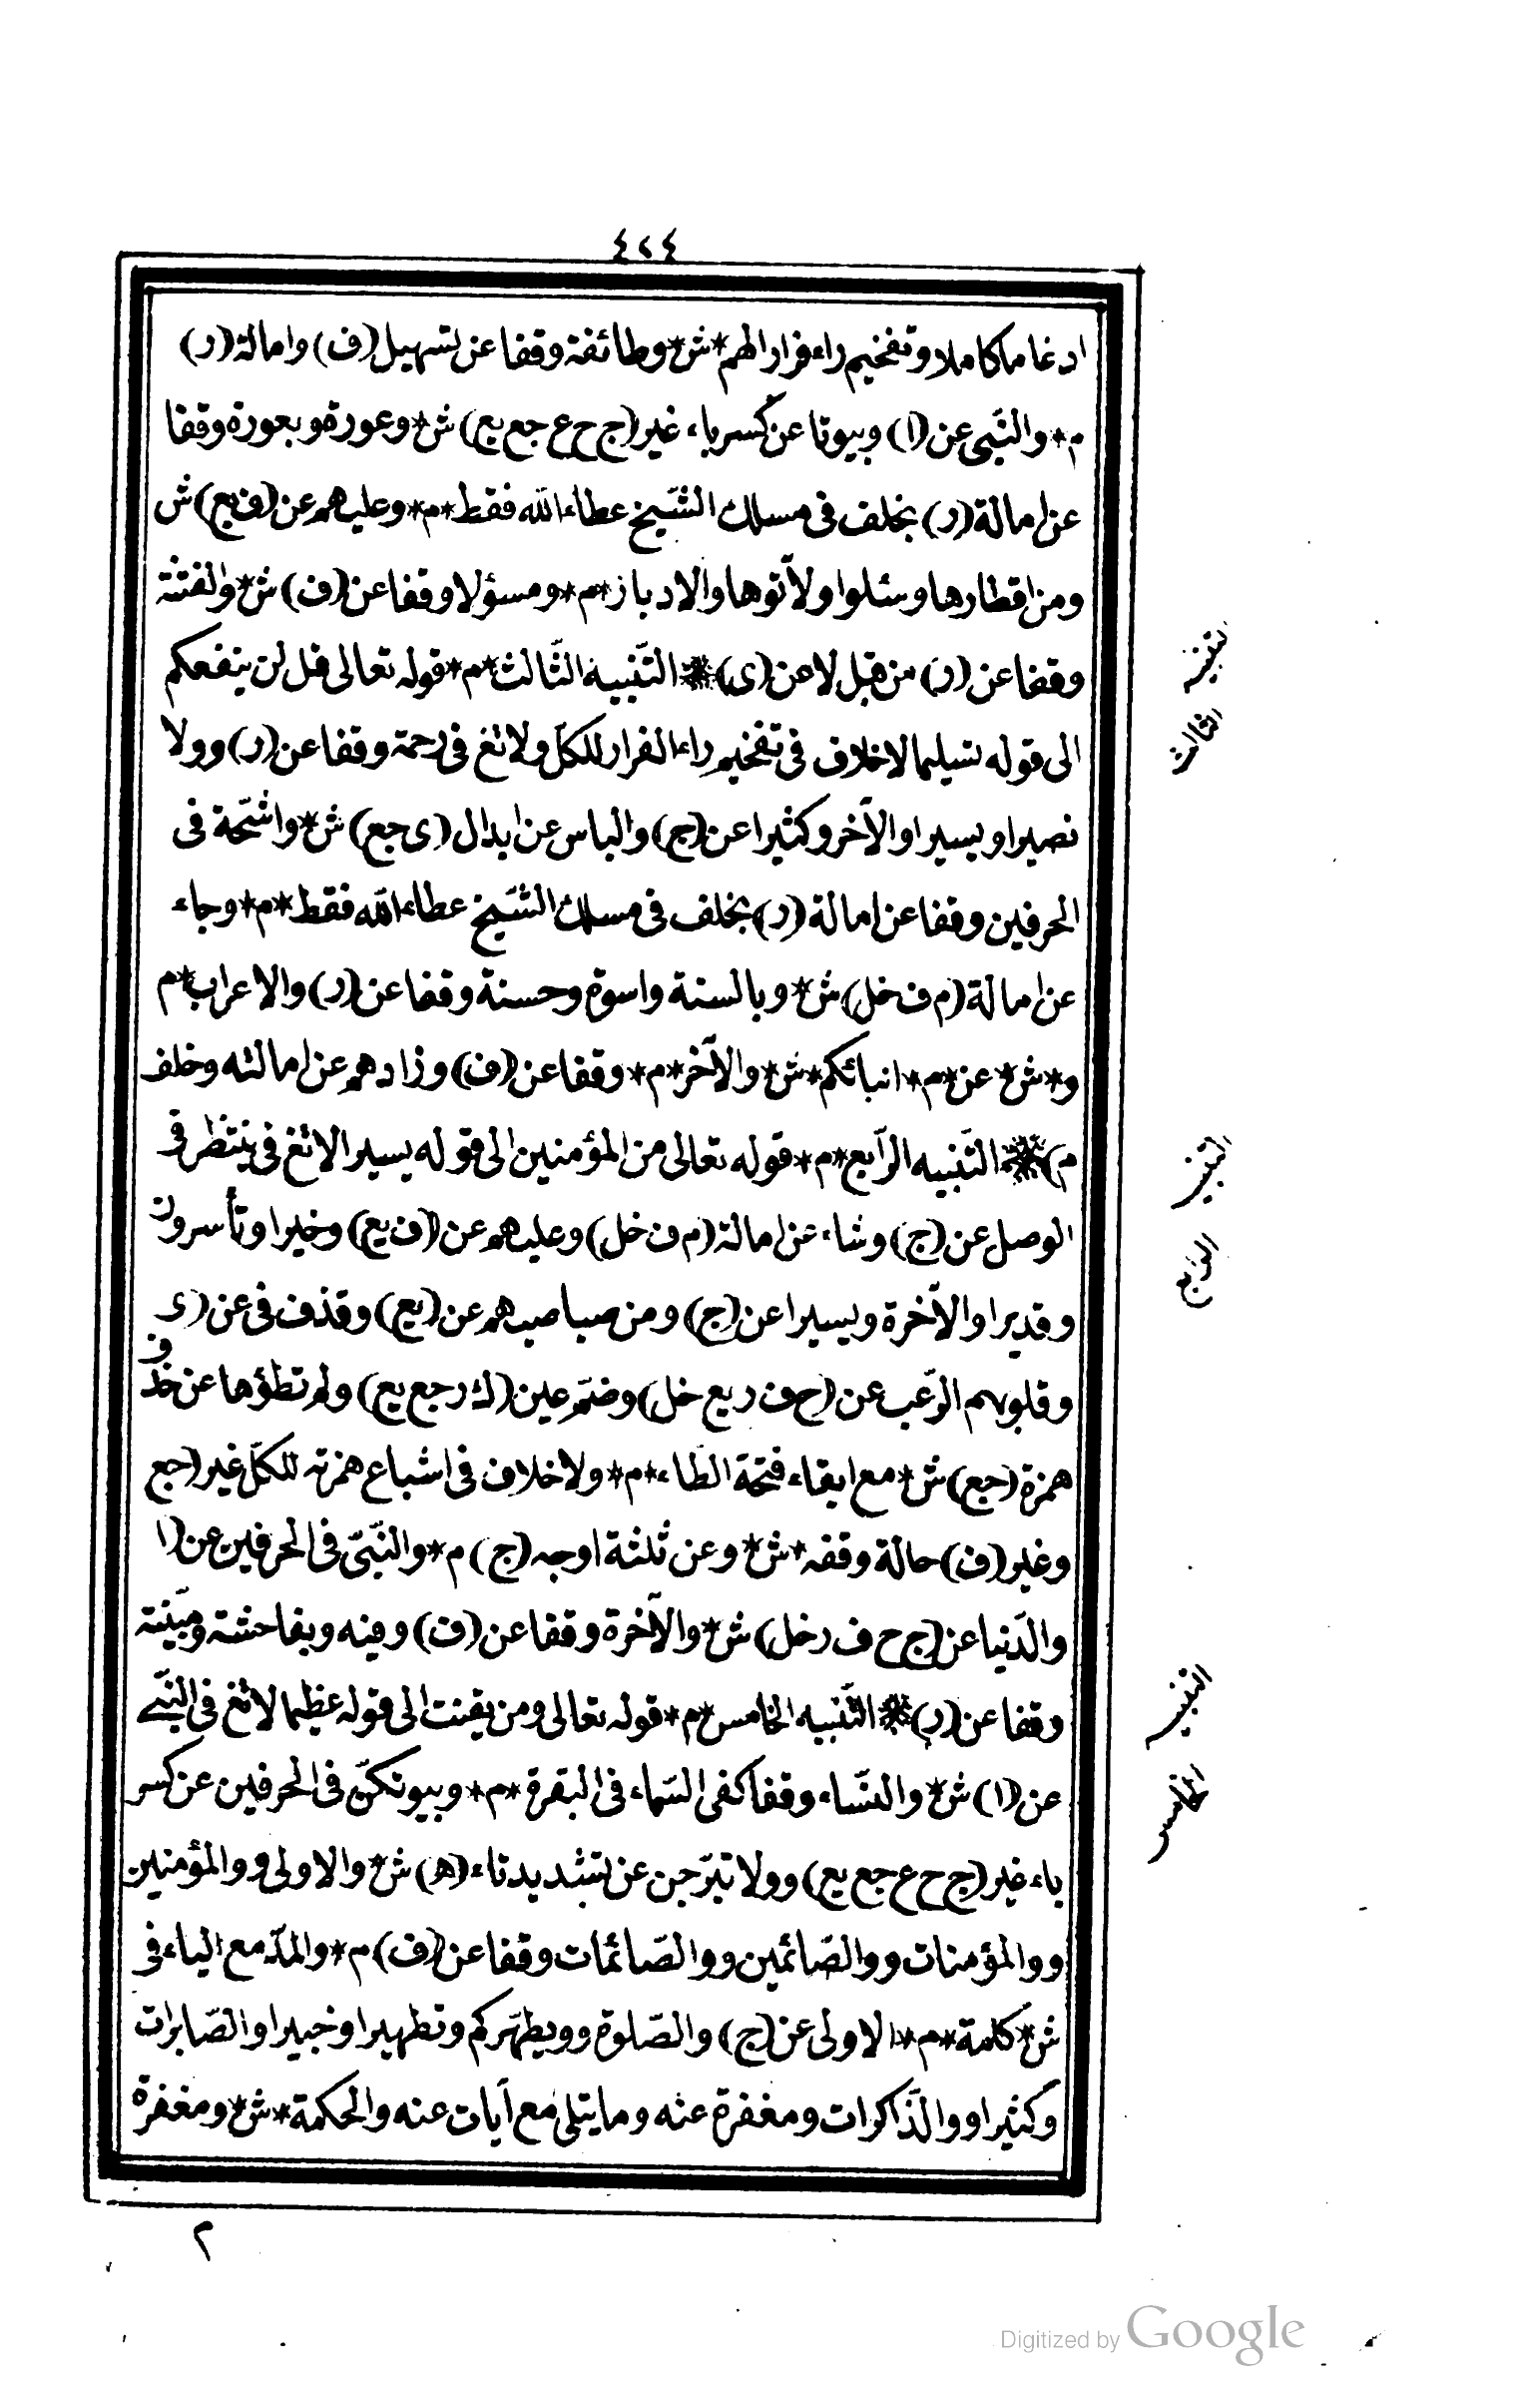 ٤٢٤
ادغاما كاملا وتفخيم راء فرارا لهم * ش * وطائفة وقفا عن تسهيل (ف) وامالة (ر)
م * والنّبى عن (ا) وبيوتا عن كسر باء غير (ج ح ع جع يع) ش * وعورة وبعورة وقفا
عن امالة (ر) بخلف فى مسلك الشّيخ عطاءالله فقط * م * وعليهم عن (ف يع) ش
ومن اقطارها وسئلوا ولآتوها والادبار * م * ومسؤلا وقفا عن (ف) ش * والفتنة
وقفا عن (ر) من قبل لا عن (ى) * التّنبيه الثّالث * م * قوله تعالى قل لن ينفعكم
الى قوله تسليما لاخلاف فى تفخيم راء الفرار للكلّ ولا ئغ فى رحمة وقفا عن (ر) وولا
نصيرا ويسيرا والآخر وكثيرا عن (ج) والباس عن ابدال (ى جع) ش * واشحّة فى
الحرفين وقفا عن امالة (ر) بخلف فى مسلك الشّيخ عطاءالله فقط * م * وجاء
عن امالة (م ف خل) ش * وبالسنة واسوة وحسنة وقفا عن (ر) والاعراب * م
و * ش * عن * م * انبائكم * ش * والآخر * م * وقفا عن (ف) وزادهم عن امالته وخلف
م) * التّنبيه الرّابع * م * قوله تعالى من المؤمنين الى قوله يسيرا لا ئغ فى ينتظر فى
الوصل عن (ج) وشاء عن امالة (م ف خل) وعليهم عن (ف يع) وخيرا وتأسرون
وقديرا والآخرة ويسيرا عن (ج) ومن صياصيهم عن (يع) وقذف فى عن (ى
وقلوبهم الرّعب عن (ح ف ر يع خل) وضمّ عين (ك ر جع يع) ولم تطؤها عن حذف
همزة (جع) ش * مع ابقاء فتحة الطّاء * م * ولاخلاف فى اشباع همزته للكلّ غير (جع
وغير (ف) حالة وقفه * ش * وعن ثلثة اوجه (ج) م * والنّبىّ فى الحرفين عن (ا
والدّنيا عن (ج ح ف ر خل) ش * والآخرة وقفا عن (ف) وفيه وبفاحشة ومبيّنة
وقفا عن (ر) * التّنبيه الخامس * م * قوله تعالى ومن يقنت الى قوله عظيما لا ئغ فى النّبىّ
عن (ا) ش * والنّساء وقفا كفى السّماء فى البقرة * م * وبيوتكنّ فى الحرفين عن كسر
باء غير (ج ح ع جع يع) وولا تبرّجن عن تشديد تاء (ه) ش * والاولى ووالمؤمنين
ووالمؤمنات ووالصّائمين ووالصّائمات وقفا عن (ف) م * والمدّ مع الياء فى
ش * كلمة * م * الاولى عن (ج) والصّلوة وويطهّركم وتطهيرا وخبيرا والصّابرات
وكثيرا ووالذّاكرات ومغفرة عنه وما يتلى مع آيات عنه والحكمة * ش * ومغفرة
تنبيه
الثالث
التنبيه
الرّابع
التنبيه
الخامس
م
Digitized by Google